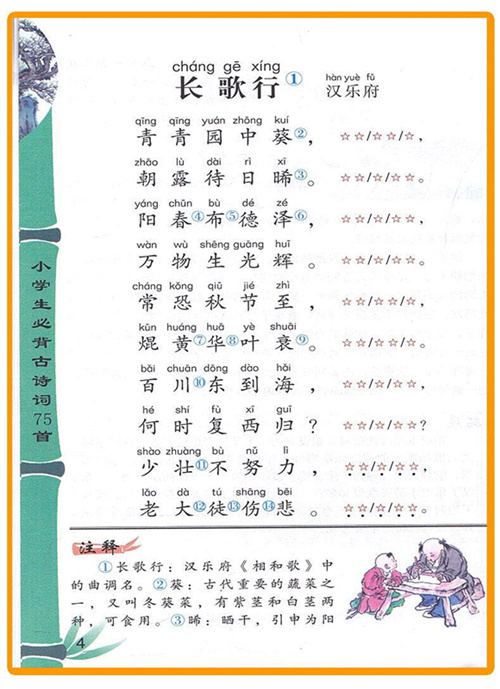 cháng gē xíng
长歌行① hàn yuè fǔ 汉乐府
qīng qīng yuán zhōng kuí
青青园中葵②， ☆☆/☆☆/☆，
zhāo lù dài rì xī
朝露待日晞③。 ☆☆/☆/☆☆。
yáng chūn bù dé zé
阳春④布⑤德泽⑥， ☆☆/☆/☆☆，
wàn wù shēng guāng huī
万物生光辉。 ☆☆/☆/☆☆。
cháng kǒng qiū jié zhì
常恐秋节至， ☆☆/☆☆/☆，
kūn huáng huā yè shuāi
焜黄⑦华⑧叶衰⑨。 ☆☆/☆☆/☆。
bǎi chuān dōng dào hǎi
百川⑩东到海， ☆☆/☆/☆☆，
hé shí fù xī guī
何时复西归？ ☆☆/☆/☆☆？
shào zhuàng bù nǔ lì
少壮⑪不努力， ☆☆/☆/☆☆，
lǎo dà tú shāng bēi
老大⑫徒⑬伤⑭悲。 ☆☆/☆/☆☆。
小学生必背古诗词75首
注释
①长歌行：汉乐府《相和歌》中
的曲调名。②葵：古代重要的蔬菜之
一，又叫冬葵菜，有紫茎和白茎两
种，可食用。③晞：晒干，引申为阳
4